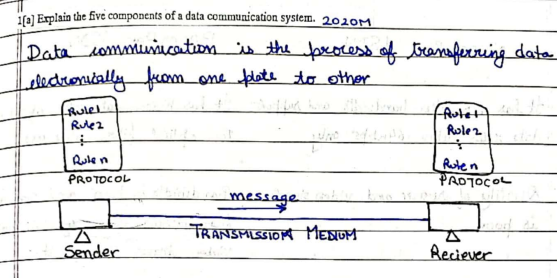 1[a] Explain the five components of a data communication system. 2020M
Data communication is the process of transferring data
electronically from one plate to other
Rule1
Rule2
⋮
Rule n
PROTOCOL
Rule1
Rule2
⋮
Rule n
PROTOCOL
message
TRANSMISSION MEDIUM
Sender
Reciever